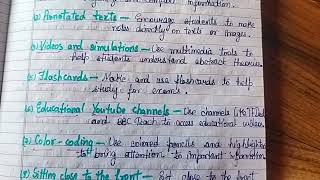 and compare information.
(2) Annotated texts — Encourage students to make
notes directly on texts or images.
(3) Videos and simulations — Use multimedia tools to
help students understand abstract theories.
(5) Flashcards — Make and use flashcards to help
study for exams.
(6) Educational YouTube channels — Use channels like
and BBC Teach to access educational videos.
(7) Color-coding — Use coloured pencils and highlighters
to bring attention to important information
(8) Sitting close to the front — Sit close to the front